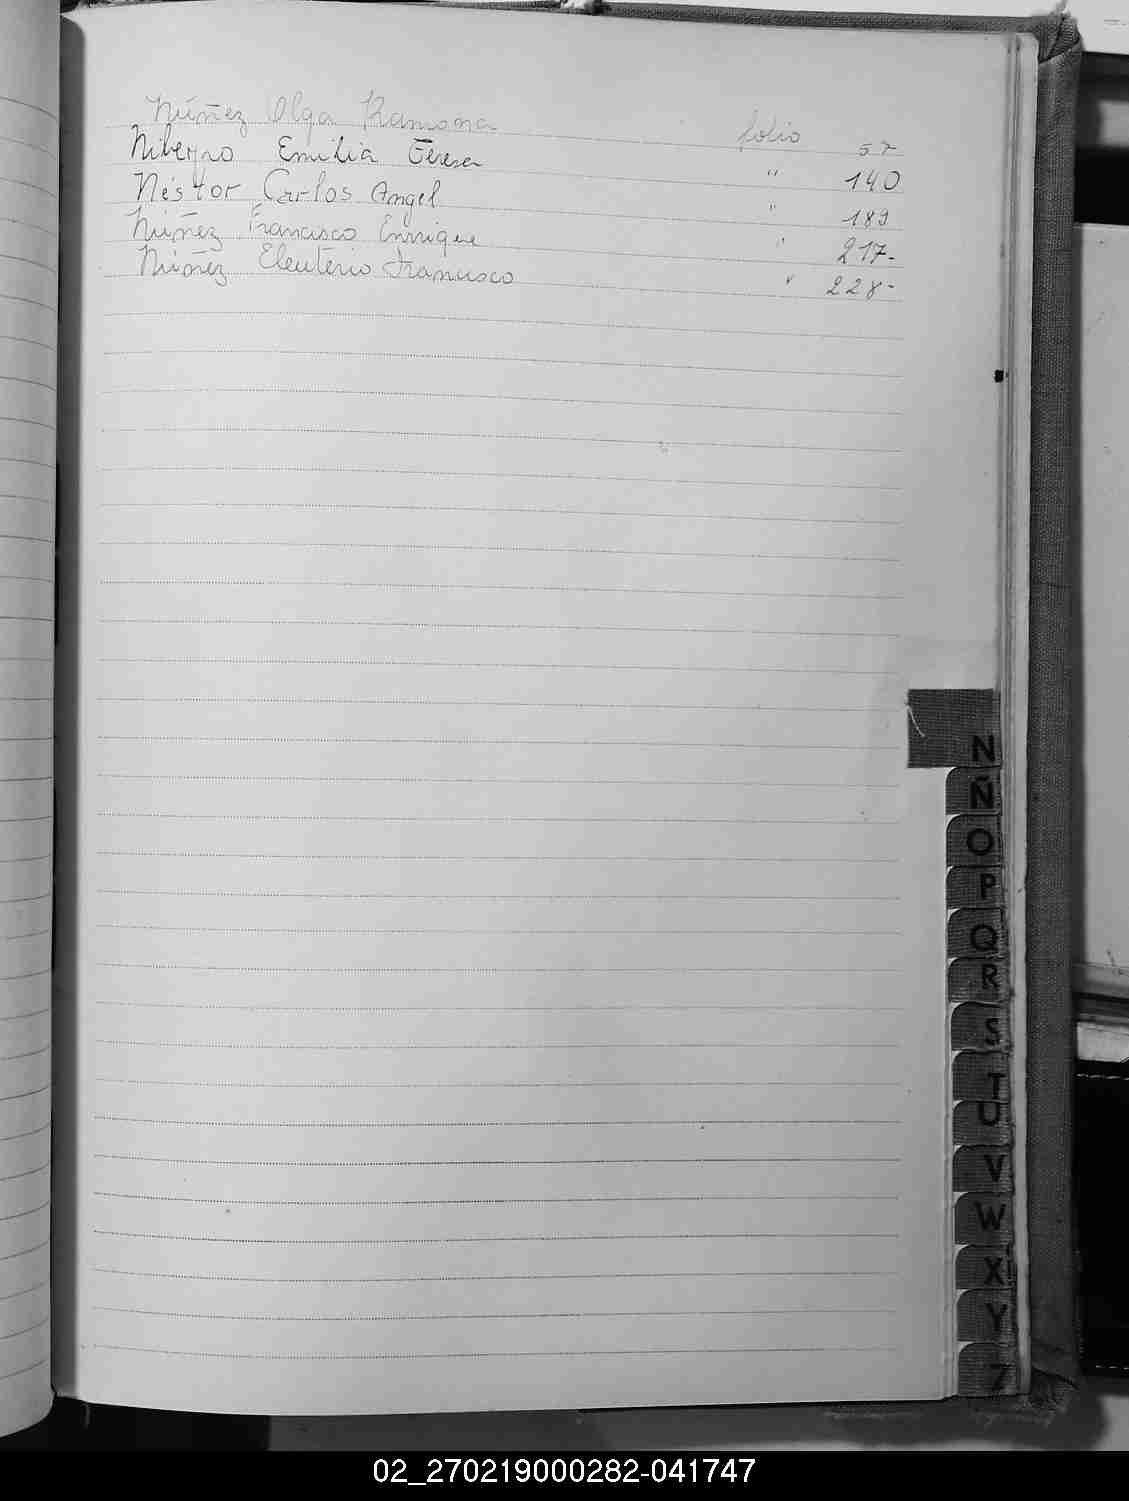 Núñez Olga Ramona folio 57
Niberro Emilia Teresa " 140
Néstor Carlos Angel " 189
Núñez Francisco Enrrique " 217-
Núñez Eleuterio Francisco " 228-
N
Ñ
O
P
Q
R
S
T
U
V
W
X
Y
Z
02_270219000282-041747